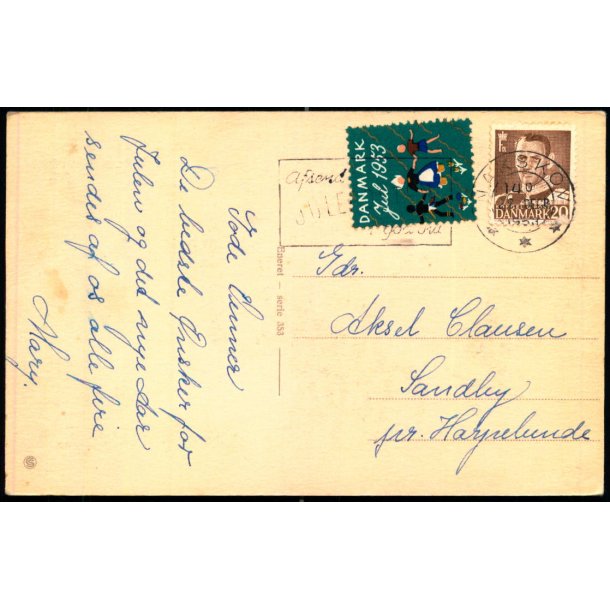 Søde Venner
De bedste Ønsker for
Julen og det nye Aar
sendes af os alle fire
Mary.
Eneret - serie 353
Afsend
JULE
DANMARK
Jul 1953
DANMARK 20
NAKSKOV
Gdr.
Aksel Clausen
Sandby
pr. Harpelunde